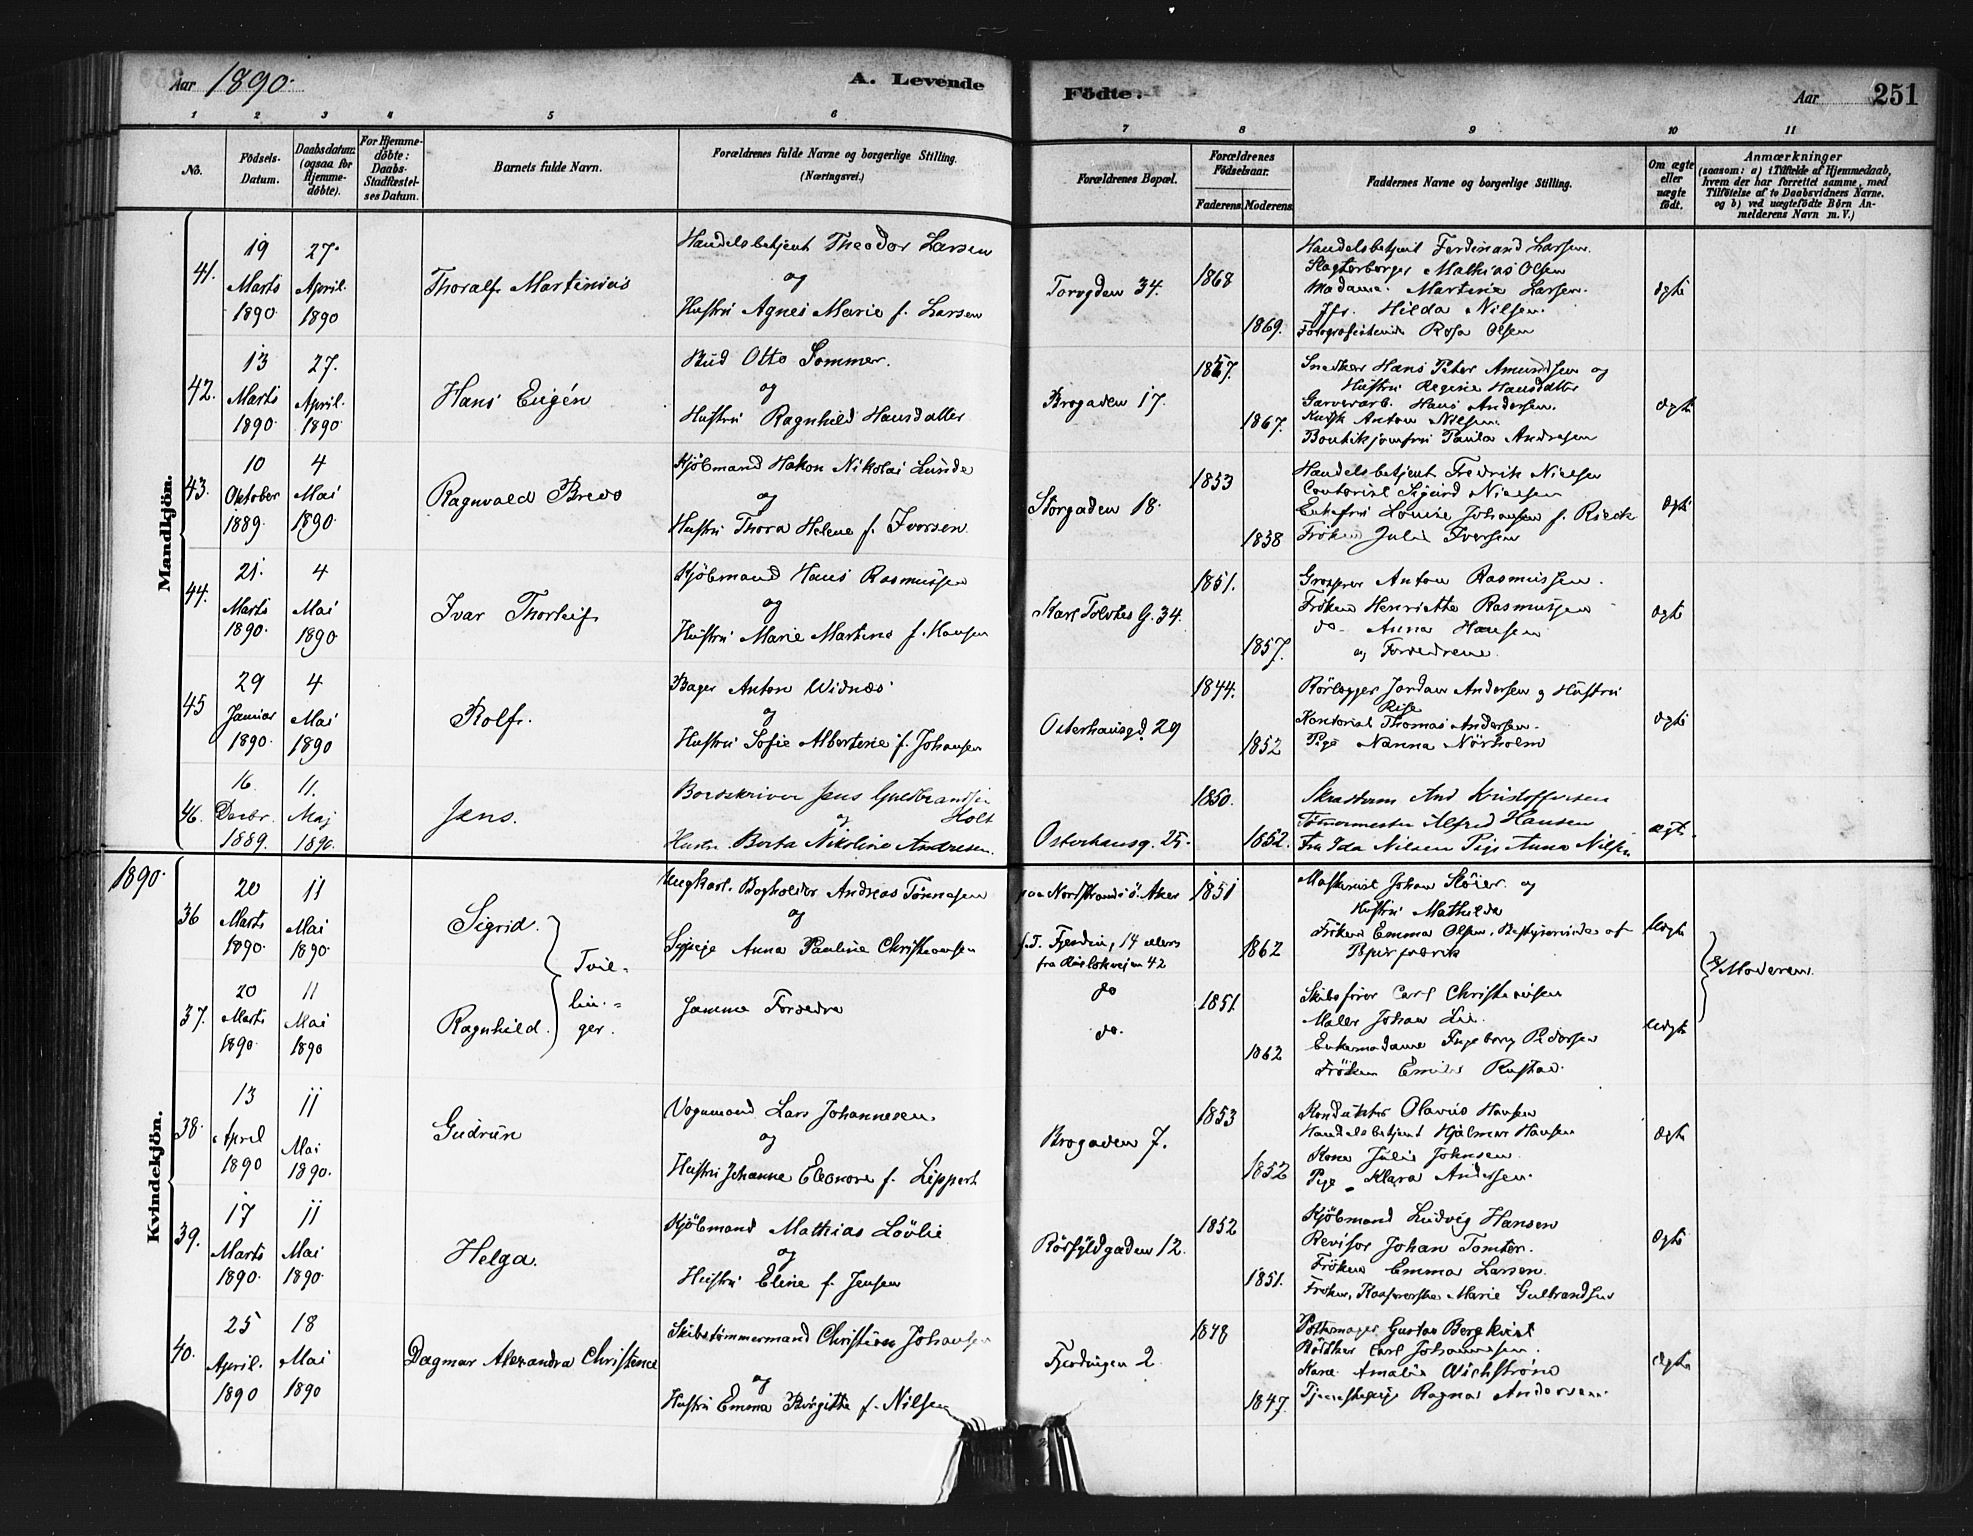 Aar 1890.
A. Levende Fødte.
Aar 251
1 2 3 4 5 6 7 8 9 10 11
No.
Födsels-Datum.
Daabsdatum (ogsaa for Hjemmedöbte).
For Hjemmedöbte: Daabs-Stadfæstelses Datum.
Barnets fulde Navn.
Forældrenes fulde Navne og borgerlige Stilling. (Næringsvei.)
Forældrenes Bopæl.
Forældrenes Födselsaar.
Faderens. Moderens.
Faddernes Navne og borgerlige Stilling.
Om ægte eller uægte født.
Anmærkninger
(saasom: a) i Tilfælde af Hjemmedaab, hvem der har forrettet samme, med Tilföielse af to Daabsvidners Navne. og b) ved uægtefödte Børn Anmelderens Navn m. V.)
Mandkjön.
41. 19 Marts 1890. 27. April 1890
Thoralf Martinius
Handelsbetjent Theodor Larsen
og
Hustru Agnes Marie f. Larsen
Torvgden 34.
1868
1869.
Handelsbetjent Ferdinand Larsen.
Slagterborger Mathias Olsen
Madame Martine Larsen.
Jfr. Hilda Nilsen.
Rosa Olsen
ægte
42. 13 Marts 1890. 27. April. 1890.
Hans Eugén
Bud Otto Sommer.
og
Hustru Ragnhild Hansdatter
Brogaden 17.
1867.
1867.
Snedker Hans Peter Amundsen og
Hustru Regine Hansdatter
Garverarb. Hans Andersen.
Kudsk Anton Nilsen
Boutikjomfru Paula Andresen
ægte
43. 10 Oktober 1889. 4 Mai 1890.
Ragnvald Bredo
Kjöbmand Hakon Nikolai Lunde
og
Hustru Thora Helene f. Iversen.
Storgaden 18.
1853
1838
Handelsbetjent Fredrik Nielsen
Contorist Sigurd Nielsen
Enkefru Louise Johansen f. Rieck
Fröken Julie Iversen
ægte
44. 21. Marts 1890. 4 Mai 1890
Ivar Thorleif
Kjöbmand Hans Rasmussen
og
Hustru Marie Martine f. Hansen
Karl 34.
1851.
1857.
Grosserer Anton Rasmussen.
Fröken Henriette Rasmussen
do. Anna Hansen
og Forældrene.
ægte
45 29 Januar 1890. 4 Mai 1890
Rolf.
Bager Anton Widnæs
og
Hustru Sofie Albertine f. Johansen
Osterhausgd. 29
1844.
1852
Rörlægger Jordan Andersen og Hustru
Kontorist Thomas Andersen.
Pige Nanna Nörholm
ægte
46. 16. Decbr. 1889. 11. Maj 1890.
Jens.
Bordskriver Jens Guldbrandsen
Holt
og
Hustru Berta Nikoline Andresen.
Osterhausg. 25.
1850.
1852.
And Kristoffersen
Tömmermester Alfred Hansen
Fru Ida Nilsen Pige Anna Nilsen
ægte
1890.
Kvindekjön.
36 20 Marts 1890. 11 Mai 1890.
Sigrid.
Tvillinger.
Ungkarl. Bogholder Andreas Tönnesen
og
Sypige Anna Pauline Christiansen
paa Nordstrand i Ö. Aker
f.T. 14 ellers
fra 42
1851
1862
Maskinist Johan
Hustru Mathilde
Fröken Emma Olsen, Bestyrerinde af
Papirfabrik
Uægte
v/Moderen.
37. 20 Marts 1890. 11 Mai 1890
Ragnhild.
Samme Forældre
do
do.
1851.
1862
Skibsförer Carl Christensen
Maler Johan Lie.
Enkemadame Ingeborg Pedersen
Fröken Emilie Rustad.
Uægte
38. 13 April 1890 11 Mai 1890.
Gudrun
Vognmand Lars Johannesen.
og
Hustru Johanne Eleonore f. Lippert
Brogaden 7.
1853
1852
Konduktör Olavus Hansen
Handelsbetjent Hjalmar Hansen
Kone Julie Johnsen.
Pige Klara Andersen.
ægte
39. 17 Marts 1890. 11 Mai 1890.
Helga.
Kjöbmand Mathias Lövlie
og
Hustru Eline f. Jensen
Rörfyldgaden 12.
1852
1851.
Kjöbmand Ludvig Hansen
Revisor Johan Tomter.
Fröken Emma Larsen.
Fröken, Kassererske Marie Gulbrandsen
ægte
40. 25 April. 1890 18 Mai 1890
Dagmar Alexandra Christence
Skibstömmermand Christian Johansen
og
Hustru Emma Birgitte f. Nilsen
Fjerdingen 2.
1848
1847.
Pottemager Gustav Bergkvist
Bödker Carl Johannesen.
Kone Amalie Wichström
Tjenestepige Ragna Andersen
ægte